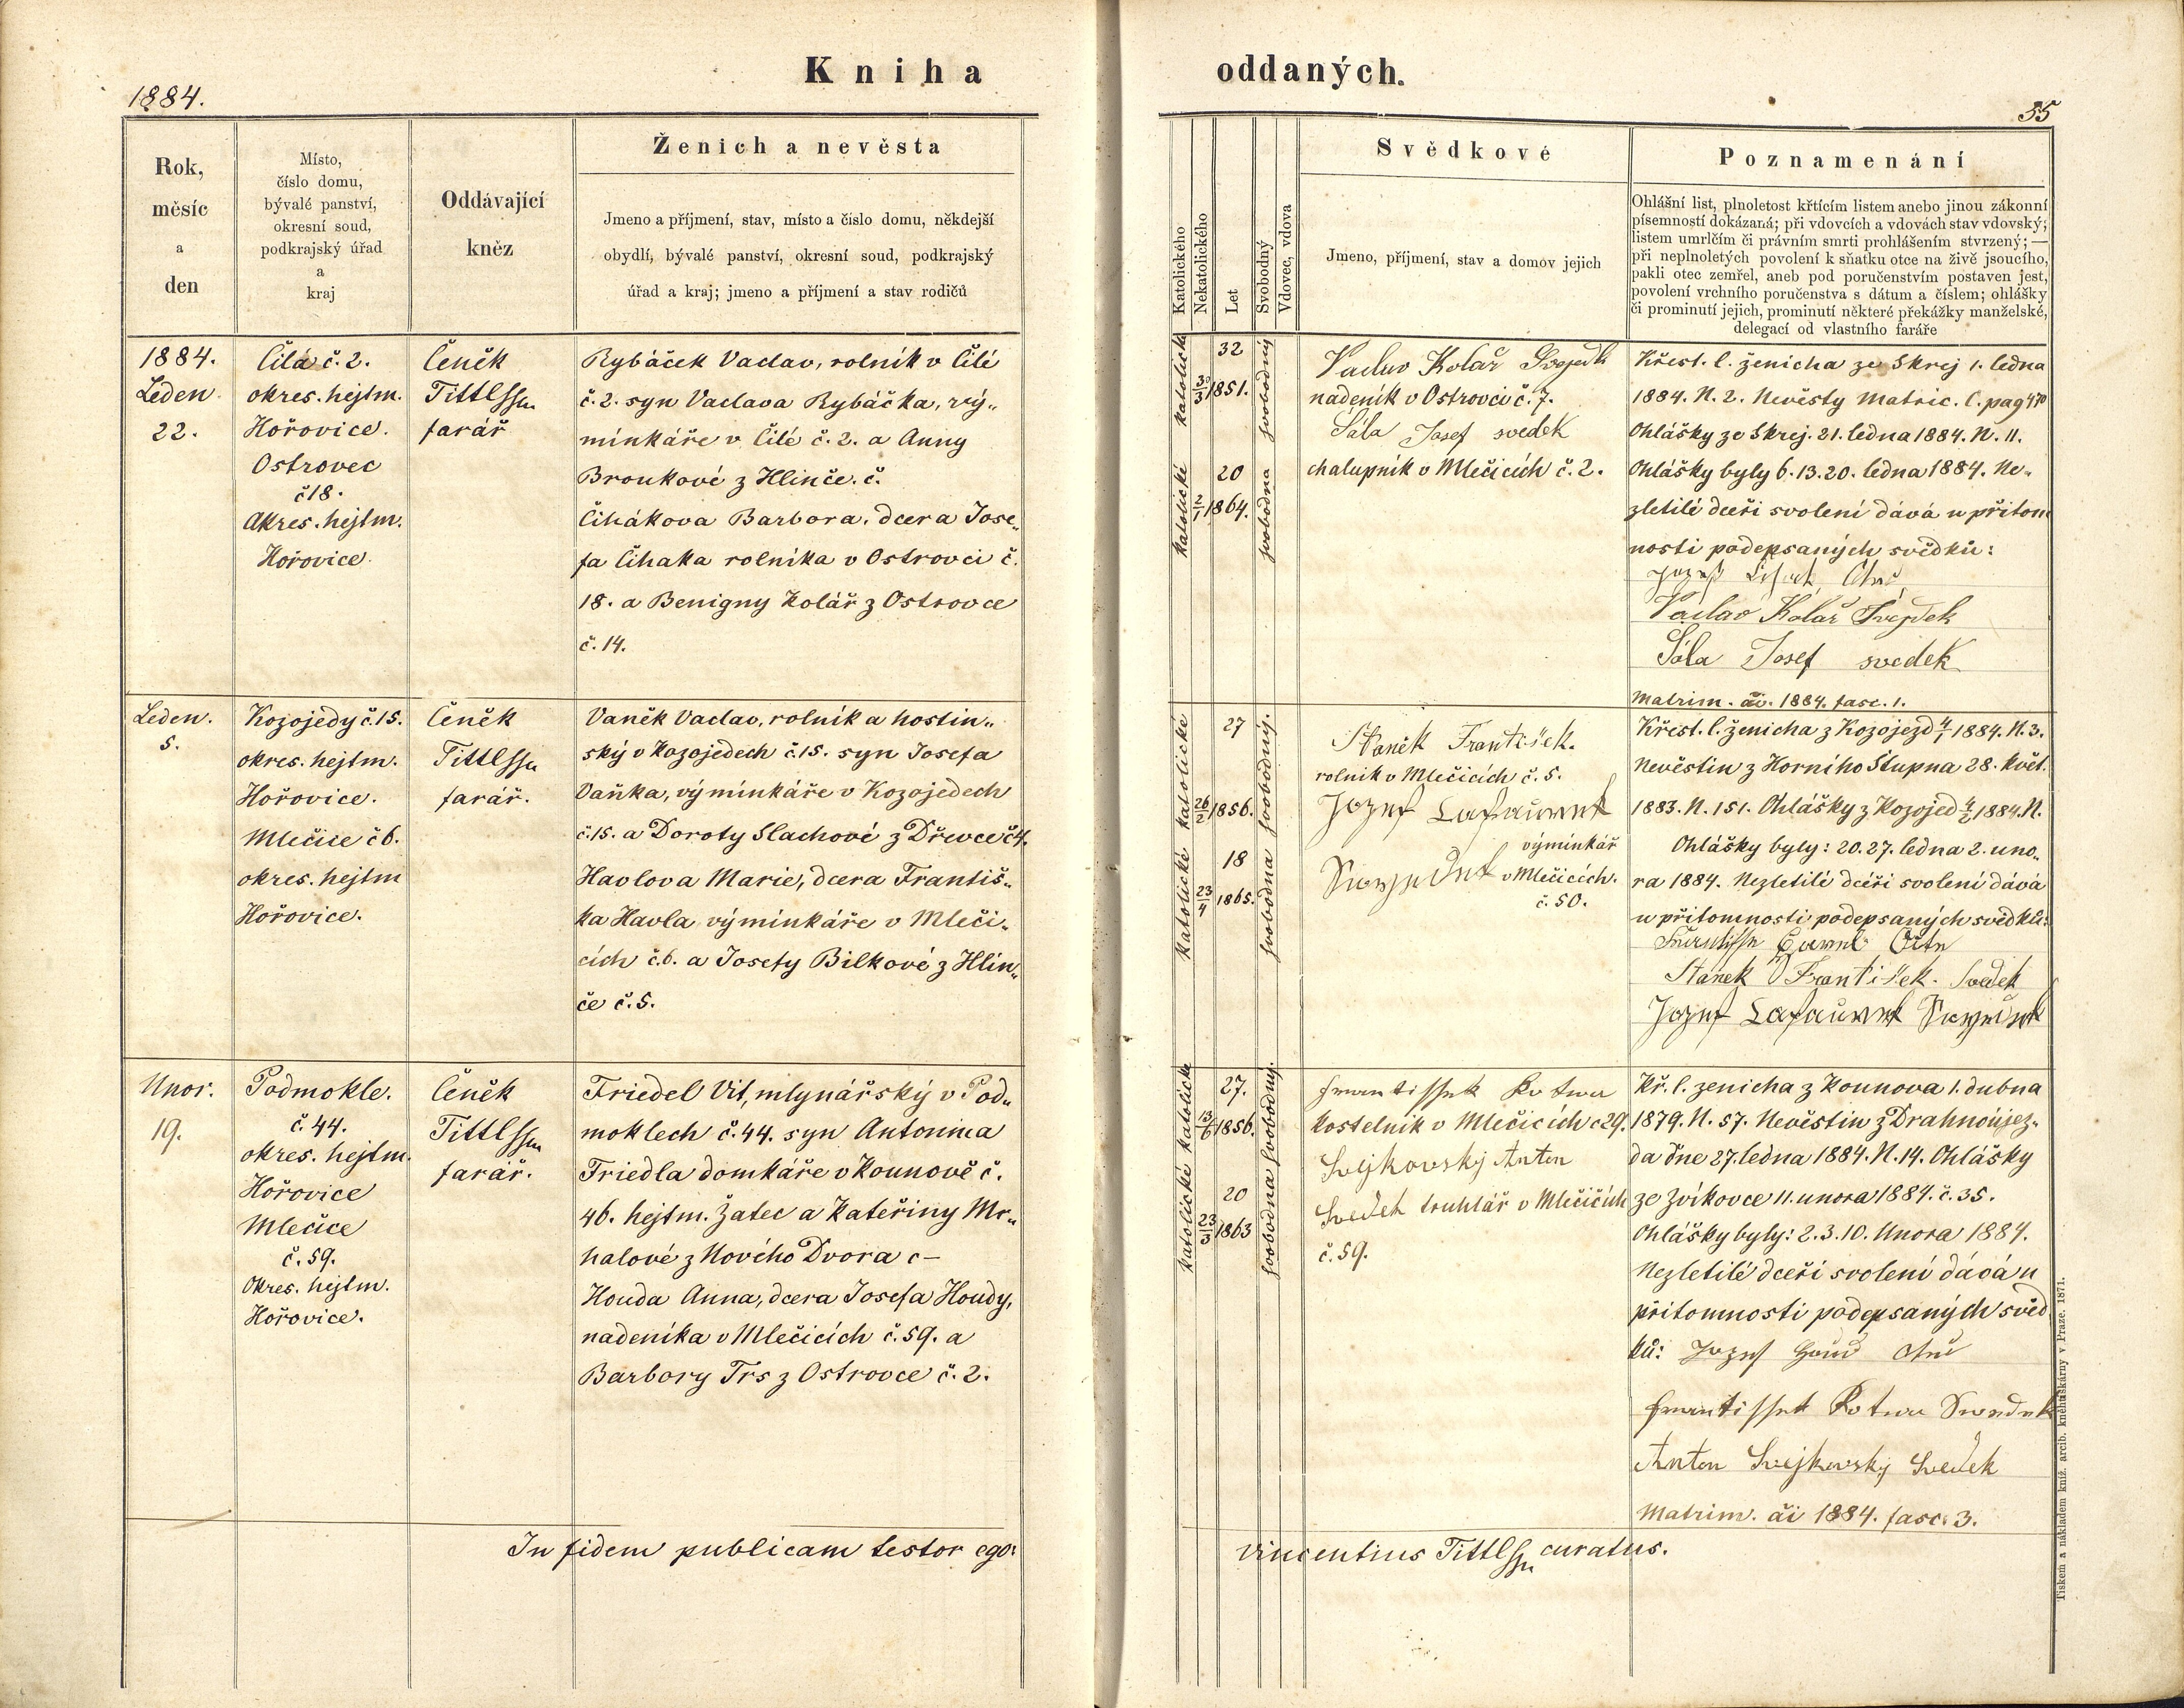 Kniha
oddaných.
1884.
55
Rok,
měsíc
a
den
Místo,
číslo domu,
bývalé panství,
okresní soud,
podkrajský úřad
a
kraj
Oddávající
kněz
Ženich a nevěsta
Jmeno a příjmení, stav, místo a číslo domu, někdejší
obydlí, bývalé panství, okresní soud, podkrajský
úřad a kraj; jmeno a příjmení a stav rodičů
Katolického
Nekatolického
Let
Svobodný
Vdovec, vdova
Svědkové
Jmeno, příjmení, stav a domov jejich
Poznamenání
Ohlášní list, plnoletost křtícím listem anebo jinou zákonní
písemností dokázaná; při vdovcích a vdovách stav vdovský;
listem umrlčím či právním smrti prohlášením stvrzený; —
při neplnoletých povolení k sňatku otce na živě jsoucího,
pakli otec zemřel, aneb pod poručenstvím postaven jest,
povolení vrchního poručenstva s dátum a číslem; ohlášky
či prominutí jejich, prominutí některé překážky manželské,
delegací od vlastního faráře
1884.
Leden
22.
Čilá č. 2.
okres. hejtm.
Hořovice.
Ostrovec
č 18.
Okres. hejtm.
Hořovice.
Čeněk
Tittl
farář
Rybáček Vaclav, rolník v Čilé
č. 2. syn Vaclava Rybáčka, vý„
minkáře v Čilé č. 2. a Anny
Broukové z Hlinče. č.
Čihákova Barbora, dcera Jose„
fa Čihaka rolníka v Ostrovci č.
18. a Benigny Kolář z Ostrovce
č. 14.
katolick
32
30/3 1851.
svobodný
katolické
20
2/1 1864.
svobodna
Vaclav Kolář Svejdek
nádeník v Ostrovci č. 7.
Sála Josef svedek
chalupník v Mlečicích č. 2.
Křest. l. ženicha ze Skrej 1. ledna
1884. N. 2. Nevěsty Matric. C. pag 470
Ohlášky ze Skrej. 21. ledna 1884. N. 11.
Ohlášky byly 6. 13. 20. ledna 1884. Ne„
zletilé dceři svolení dává u přitom
nosti podepsaných svědků:
Jozef Čihak Otec
Vaclav Kolář Svejdek
Sála Josef svedek
Matrim. ai. 1884. fasc. 1.
Leden.
5.
Kozojedy č. 15.
okres. hejtm.
Hořovice.
Mlečice č 6.
okres. hejtm
Hořovice.
Čeněk
Tittl
farář.
Vaněk Vaclav, rolník a hostin„
ský v Kozojedech č. 15. syn Josefa
Vaňka, výminkáře v Kozojedech
č. 15. a Doroty Slachové z Dřevce č 4.
Havlova Marie, dcera Františ„
ka Havla výminkáře v Mleči„
cích č. 6. a Josefy Bilkové z Hlin„
če č. 5.
katolické
27
26/2 1856.
svobodný.
katolické
18
23/4 1865.
svobodna
Staněk František.
rolník v Mlečicích č. 5.
Jozef
výminkář
v Mlečicích.
č. 50.
Křest. l. ženicha z Kozojezd 4/1 1884. N. 3.
Nevěstin z Horního Stupna 28. květ.
1883. N. 151. Ohlášky z Kozojed 4/2 1884. N.
Ohlášky byly: 20. 27. ledna 2. uno„
ra 1884. Nezletilé dceři svolení dává
u přitomnosti podepsaných svědků:
Stanek František. Svedek
Jozef
Unor.
19.
Podmokle.
č. 44.
okres. hejtm.
Hořovice
Mlečice
č. 59.
Okres. hejtm.
Hořovice.
Čeněk
Tittl
farář.
Friedel Vit, mlynářský v Pod„
moklech č. 44. syn Antonina
Friedla domkáře v Kounově č.
46. hejtm. Žatec a Kateřiny Mr„
halové z Nového Dvora c –
Houda Anna, dcera Josefa Houdy,
nadeníka v Mlečicích č. 59. a
Barbory Trs z Ostrovce č. 2.
katolické
27.
13/6 1856.
svobodný.
katolické
20
23/3 1863
svobodna
Frantissek Kotwa
kostelník v Mlečicích č 29.
Svejkovskj Anton
Svedek truhlář v Mlečicích
č. 59.
Kř. l. zenicha z Kounova 1. dubna
1879. N. 57. Nevěstin z Drahnoújez„
da dne 27. ledna 1884. N. 14. Ohlášky
ze Zvíkovce 11. unora 1884. č. 35.
Ohlášky byly: 2. 3. 10. Unora 1884.
Nezletilé dceři svolení dává u
přitomnosti podepsaných svěd
ků: Jozef Houd Otec
Frantissek Kotwa Swedek
Anton Svejkovskj Svedek
Matrim. ai 1884. fasc. 3.
In fidem publicam testor ego:
Vincentius Tittl curatus.
Tiskem a nákladem kníž. arcib. kněhtiskárny v Praze. 1871.